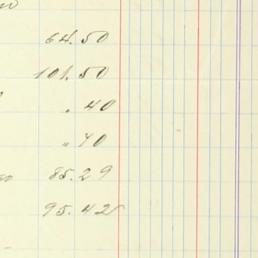 64.50
101.50
" 40
" 40
85.29
95.42